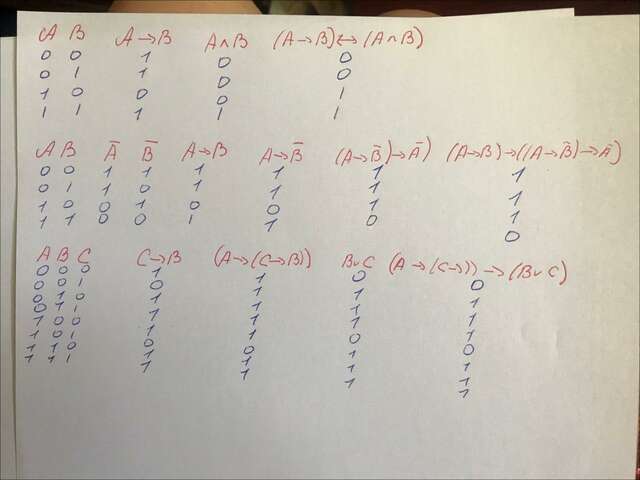 A B A→B A∧B (A→B)↔(A∧B)
0 0 1 0 0
0 1 1 0 0
1 0 0 0 1
1 1 1 1 1
A B Ā B̄ A→B A→B̄ (A→B̄)→Ā) (A→B)→((A→B̄)→Ā)
0 0 1 1 1 1 1 1
0 1 1 0 1 1 1 1
1 0 0 1 0 0 1 1
1 1 0 0 1 1 0 0
A B C C→B (A→(C→B)) B∪C (A→(C→))→(B∪C)
0 0 0 1 1 0 0
0 0 1 0 1 1 1
0 1 0 1 1 1 1
0 1 1 1 1 1 1
1 0 0 1 1 0 0
1 0 1 0 0 1 1
1 1 0 1 1 1 1
1 1 1 1 1 1 1